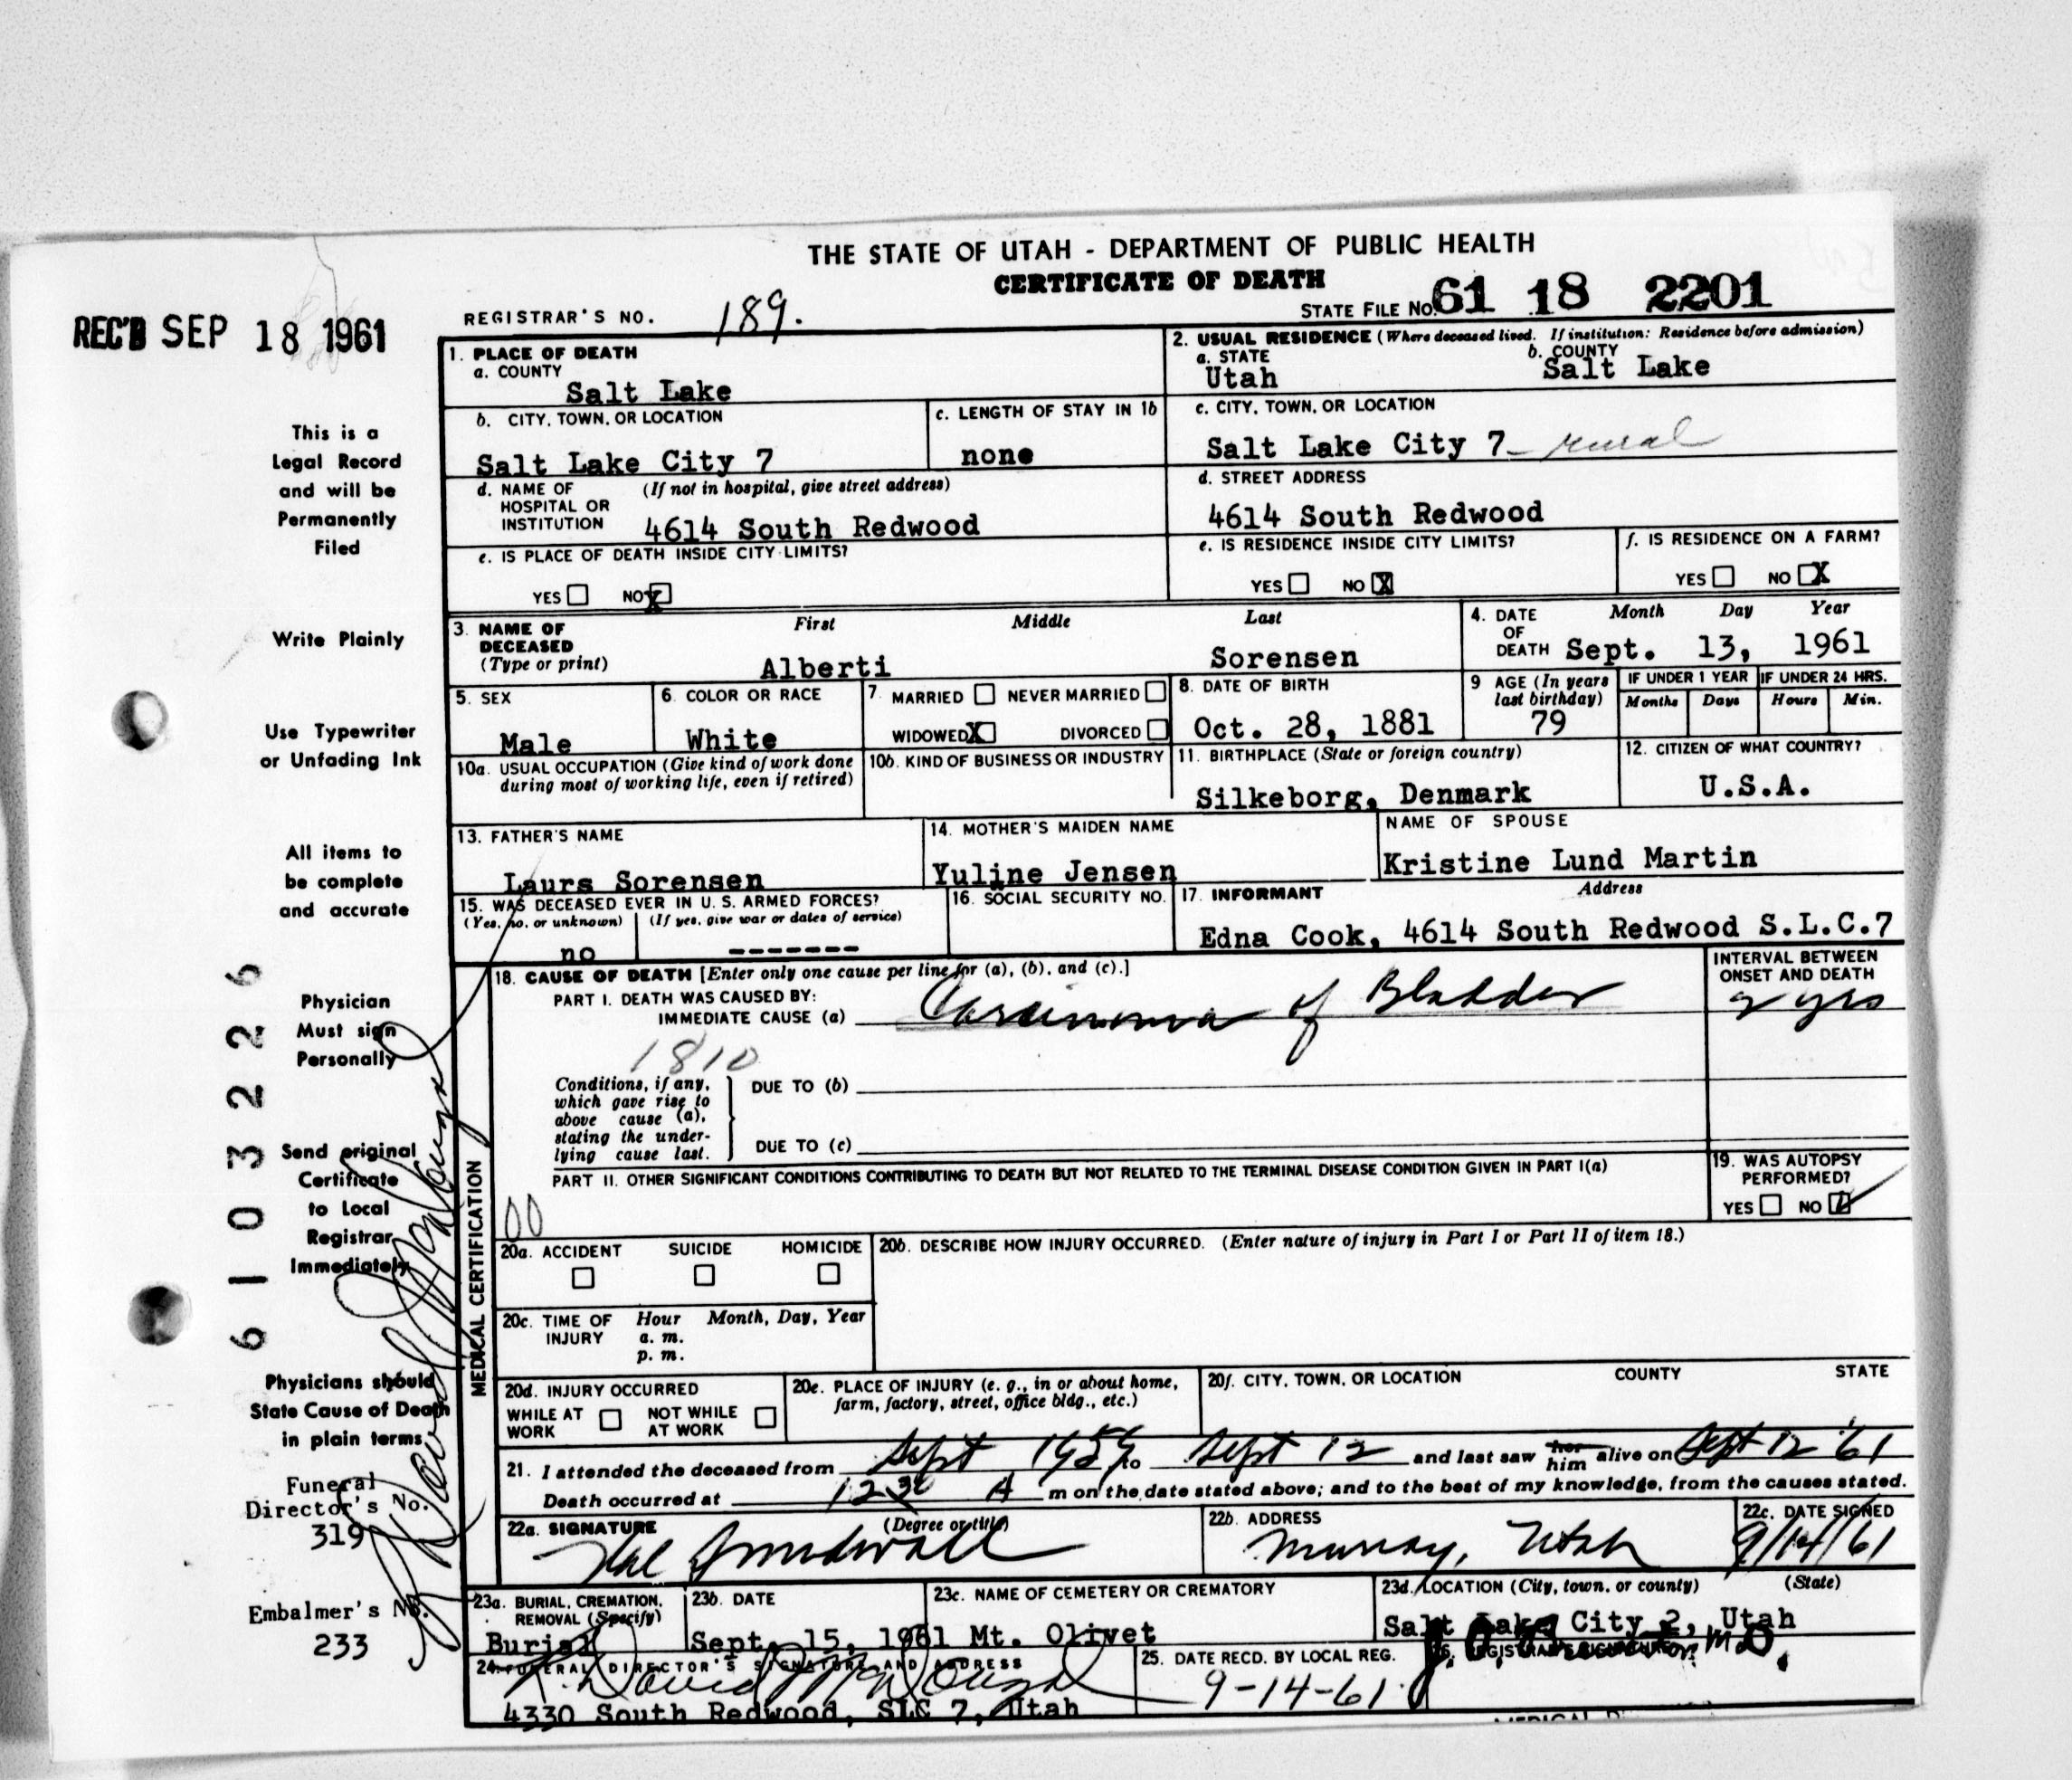 THE STATE OF UTAH - DEPARTMENT OF PUBLIC HEALTH
CERTIFICATE OF DEATH
REGISTRAR'S NO. 189.
STATE FILE NO. 61 18 2201
REC'D SEP 18 1961
This is a
Legal Record
and will be
Permanently
Filed
Write Plainly
Use Typewriter
or Unfading Ink
All items to
be complete
and accurate
Physician
Must sign
Personally
Send original
Certificate
to Local
Registrar
Immediately
Physicians should
State Cause of Death
in plain terms
Funeral
Director's No.
319
Embalmer's No.
233
61 03226
R David McDougal
1. PLACE OF DEATH
a. COUNTY
Salt Lake
b. CITY, TOWN, OR LOCATION
Salt Lake City 7
c. LENGTH OF STAY IN 1b
none
d. NAME OF HOSPITAL OR INSTITUTION (If not in hospital, give street address)
4614 South Redwood
e. IS PLACE OF DEATH INSIDE CITY LIMITS?
YES NO X
2. USUAL RESIDENCE (Where deceased lived. If institution: Residence before admission)
a. STATE
Utah
b. COUNTY
Salt Lake
c. CITY, TOWN, OR LOCATION
Salt Lake City 7 - rural
d. STREET ADDRESS
4614 South Redwood
e. IS RESIDENCE INSIDE CITY LIMITS?
YES NO X
f. IS RESIDENCE ON A FARM?
YES NO X
3. NAME OF DECEASED (Type or print)
First Middle Last
Alberti Sorensen
4. DATE OF DEATH Month Day Year
Sept. 13, 1961
5. SEX
Male
6. COLOR OR RACE
White
7. MARRIED NEVER MARRIED
WIDOWED X DIVORCED
8. DATE OF BIRTH
Oct. 28, 1881
9 AGE (In years last birthday)
79
IF UNDER 1 YEAR
Months Days
IF UNDER 24 HRS.
Hours Min.
10a. USUAL OCCUPATION (Give kind of work done during most of working life, even if retired)
10b. KIND OF BUSINESS OR INDUSTRY
11. BIRTHPLACE (State or foreign country)
Silkeborg, Denmark
12. CITIZEN OF WHAT COUNTRY?
U.S.A.
13. FATHER'S NAME
Laurs Sorensen
14. MOTHER'S MAIDEN NAME
Yuline Jensen
NAME OF SPOUSE
Kristine Lund Martin
15. WAS DECEASED EVER IN U. S. ARMED FORCES?
(Yes, no, or unknown) (If yes, give war or dates of service)
no -------
16. SOCIAL SECURITY NO.
17. INFORMANT Address
Edna Cook, 4614 South Redwood S.L.C.7
MEDICAL CERTIFICATION
18. CAUSE OF DEATH [Enter only one cause per line for (a), (b), and (c).]
PART I. DEATH WAS CAUSED BY:
IMMEDIATE CAUSE (a) Carcinoma of Bladder
INTERVAL BETWEEN ONSET AND DEATH
2 yrs
1810
Conditions, if any, which gave rise to above cause (a), stating the underlying cause last.
DUE TO (b)
DUE TO (c)
PART II. OTHER SIGNIFICANT CONDITIONS CONTRIBUTING TO DEATH BUT NOT RELATED TO THE TERMINAL DISEASE CONDITION GIVEN IN PART I(a)
00
19. WAS AUTOPSY PERFORMED?
YES NO
20a. ACCIDENT SUICIDE HOMICIDE
20b. DESCRIBE HOW INJURY OCCURRED. (Enter nature of injury in Part I or Part II of item 18.)
20c. TIME OF INJURY Hour Month, Day, Year
a. m.
p. m.
20d. INJURY OCCURRED
WHILE AT WORK NOT WHILE AT WORK
20e. PLACE OF INJURY (e. g., in or about home, farm, factory, street, office bldg., etc.)
20f. CITY, TOWN, OR LOCATION COUNTY STATE
21. I attended the deceased from Sept 1959 to Sept 12 and last saw her him alive on Sept 12 '61
Death occurred at 12 30 A m on the date stated above; and to the best of my knowledge, from the causes stated.
22a. SIGNATURE (Degree or title)
22b. ADDRESS
Murray, Utah
22c. DATE SIGNED
9/14/61
23a. BURIAL, CREMATION, REMOVAL (Specify)
Burial
23b. DATE
Sept. 15, 1961
23c. NAME OF CEMETERY OR CREMATORY
Mt. Olivet
23d. LOCATION (City, town, or county) (State)
Salt Lake City 2, Utah
24. FUNERAL DIRECTOR'S SIGNATURE AND ADDRESS
R David McDougal
4330 South Redwood, SLC 7, Utah
25. DATE RECD. BY LOCAL REG.
9-14-61
26. REGISTRAR'S SIGNATURE
M.D.